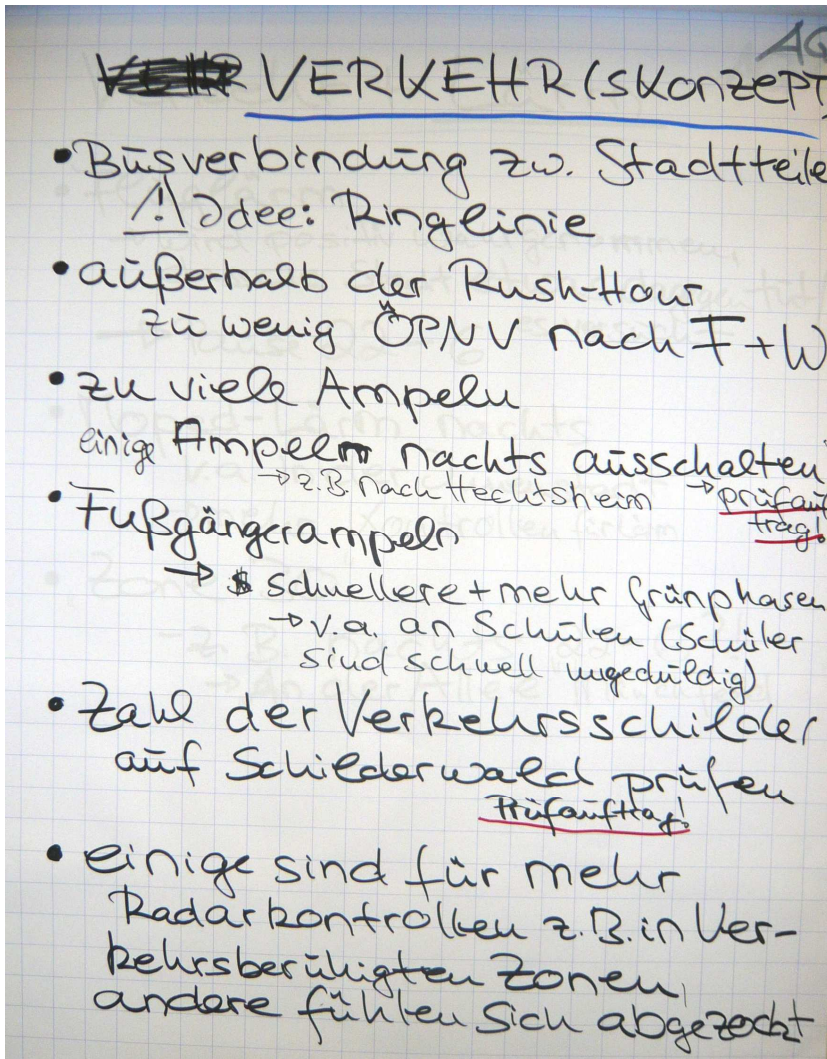 AG
VERKEHR(sKonzept
• Busverbindung zw. Stadtteile
! Idee: Ringlinie
• außerhalb der Rush-Hour
zu wenig ÖPNV nach F + W
• zu viele Ampeln
einige Ampeln nachts ausschalten
→ z.B. nach Hechtsheim → prüfauf
trag!
• Fußgängerampeln
→ schnellere + mehr Grünphasen
→ v.a. an Schulen (Schüler
sind schnell ungeduldig)
• Zahl der Verkehrsschilder
auf Schilderwald prüfen
Prüfauftrag!
• einige sind für mehr
Radarkontrollen z.B. in Ver-
kehrsberuhigten Zonen,
andere fühlen sich abgezockt